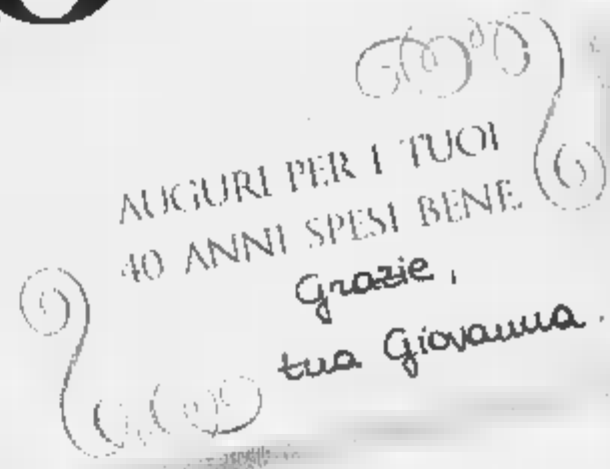 AUGURI PER I TUOI
40 ANNI SPESI BENE
Grazie,
tua Giovanna.